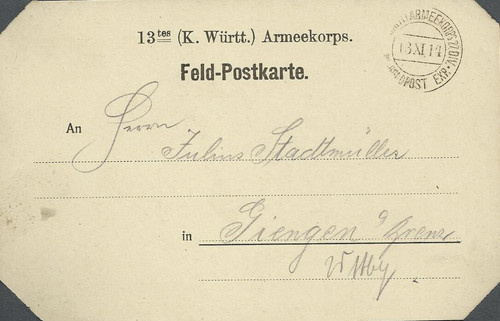 13tes (K. Württ.) Armeekorps.
Feld-Postkarte.
13 XI 14
FELDPOST EXP.
An Herrn
Julius Stadtmüller
in Giengen a/Brenz